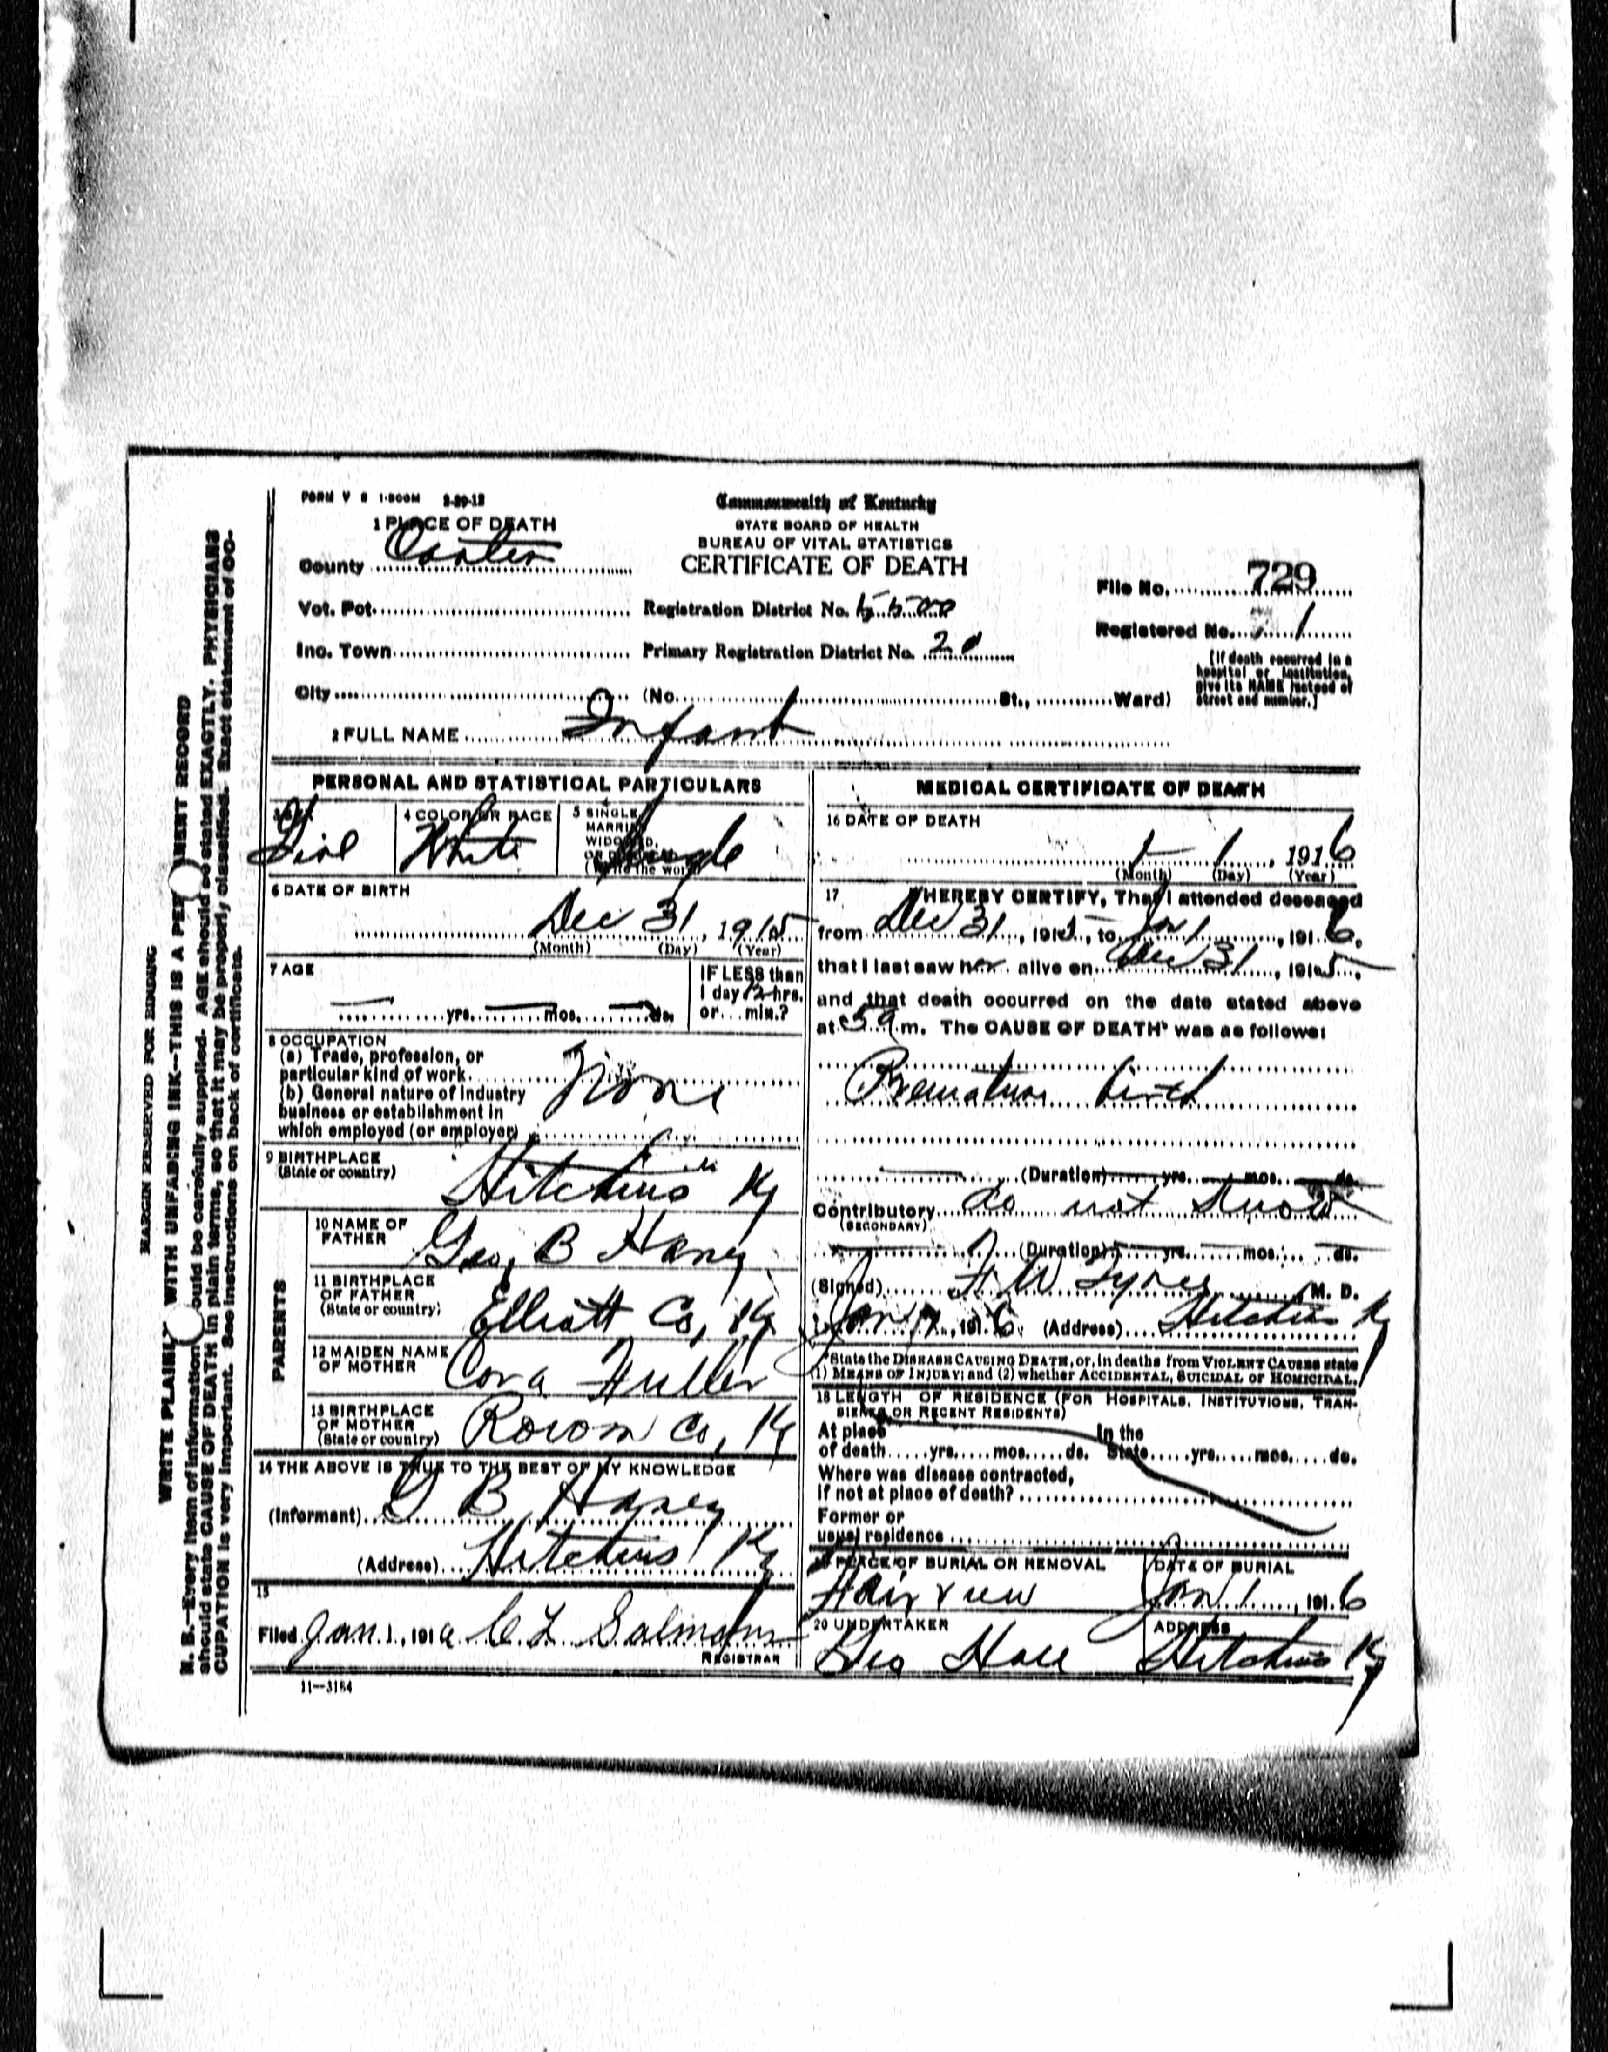 FORM V S 1-500M 3-20-12
Commonwealth of Kentucky
STATE BOARD OF HEALTH
BUREAU OF VITAL STATISTICS
CERTIFICATE OF DEATH
1 PLACE OF DEATH
County Carter
File No. 729
Vot. Pct.
Registration District No.
Registered No. 1
Inc. Town
Primary Registration District No.
[If death occurred in a hospital or institution, give its NAME instead of street and number.]
City (No. St., Ward)
2 FULL NAME Infant
PERSONAL AND STATISTICAL PARTICULARS
3 SEX
Girl
4 COLOR OR RACE
White
5 SINGLE
MARRIED
WIDOWED,
OR DIVORCED
(Write the word)
Single
6 DATE OF BIRTH
Dec 31, 1915
(Month) (Day) (Year)
7 AGE
yrs. mos. ds.
IF LESS than
1 day 12 hrs.
or min.?
8 OCCUPATION
(a) Trade, profession, or
particular kind of work
(b) General nature of industry
business or establishment in
which employed (or employer)
None
9 BIRTHPLACE
(State or country)
Hitchins Ky
PARENTS
10 NAME OF
FATHER
Geo, B Haney
11 BIRTHPLACE
OF FATHER
(State or country)
Elliott Co, Ky
12 MAIDEN NAME
OF MOTHER
Cora Fuller
13 BIRTHPLACE
OF MOTHER
(State or country)
Rowan Co, Ky
14 THE ABOVE IS TRUE TO THE BEST OF MY KNOWLEDGE
(Informant) G B Haney
(Address) Hitchins Ky
15
Filed Jan. 1, 1916 C L Salmons
REGISTRAR
11-3184
MEDICAL CERTIFICATE OF DEATH
16 DATE OF DEATH
1 1, 1916
(Month) (Day) (Year)
17 I HEREBY CERTIFY, That I attended deceased
from Dec 31, 1915, to Jan 1, 1916,
that I last saw her alive on Dec 31, 1915,
and that death occurred on the date stated above
at 5 a m. The CAUSE OF DEATH* was as follows:
Premature birth
(Duration) yrs. mos. ds.
Contributory do not know
(SECONDARY)
(Duration) yrs. mos. ds.
(Signed) M. D.
Jan , 1916 (Address) Hitchins Ky
*State the DISEASE CAUSING DEATH, or, in deaths from VIOLENT CAUSES state
(1) MEANS OF INJURY; and (2) whether ACCIDENTAL, SUICIDAL OF HOMICIDAL.
18 LENGTH OF RESIDENCE (FOR HOSPITALS, INSTITUTIONS, TRAN-
SIENTS, OR RECENT RESIDENTS)
At place In the
of death yrs. mos. ds. State yrs. mos. ds.
Where was disease contracted,
if not at place of death?
Former or
usual residence
19 PLACE OF BURIAL OR REMOVAL
Fairview
DATE OF BURIAL
Jan 1, 1916
20 UNDERTAKER
Geo Hall
ADDRESS
Hitchins Ky
MARGIN RESERVED FOR BINDING
WRITE PLAINLY WITH UNFADING INK--THIS IS A PERMANENT RECORD
N. B.--Every item of information should be carefully supplied. AGE should be stated EXACTLY. PHYSICIANS
should state CAUSE OF DEATH in plain terms, so that it may be properly classified. Exact statement of OC-
CUPATION is very important. See instructions on back of certificate.